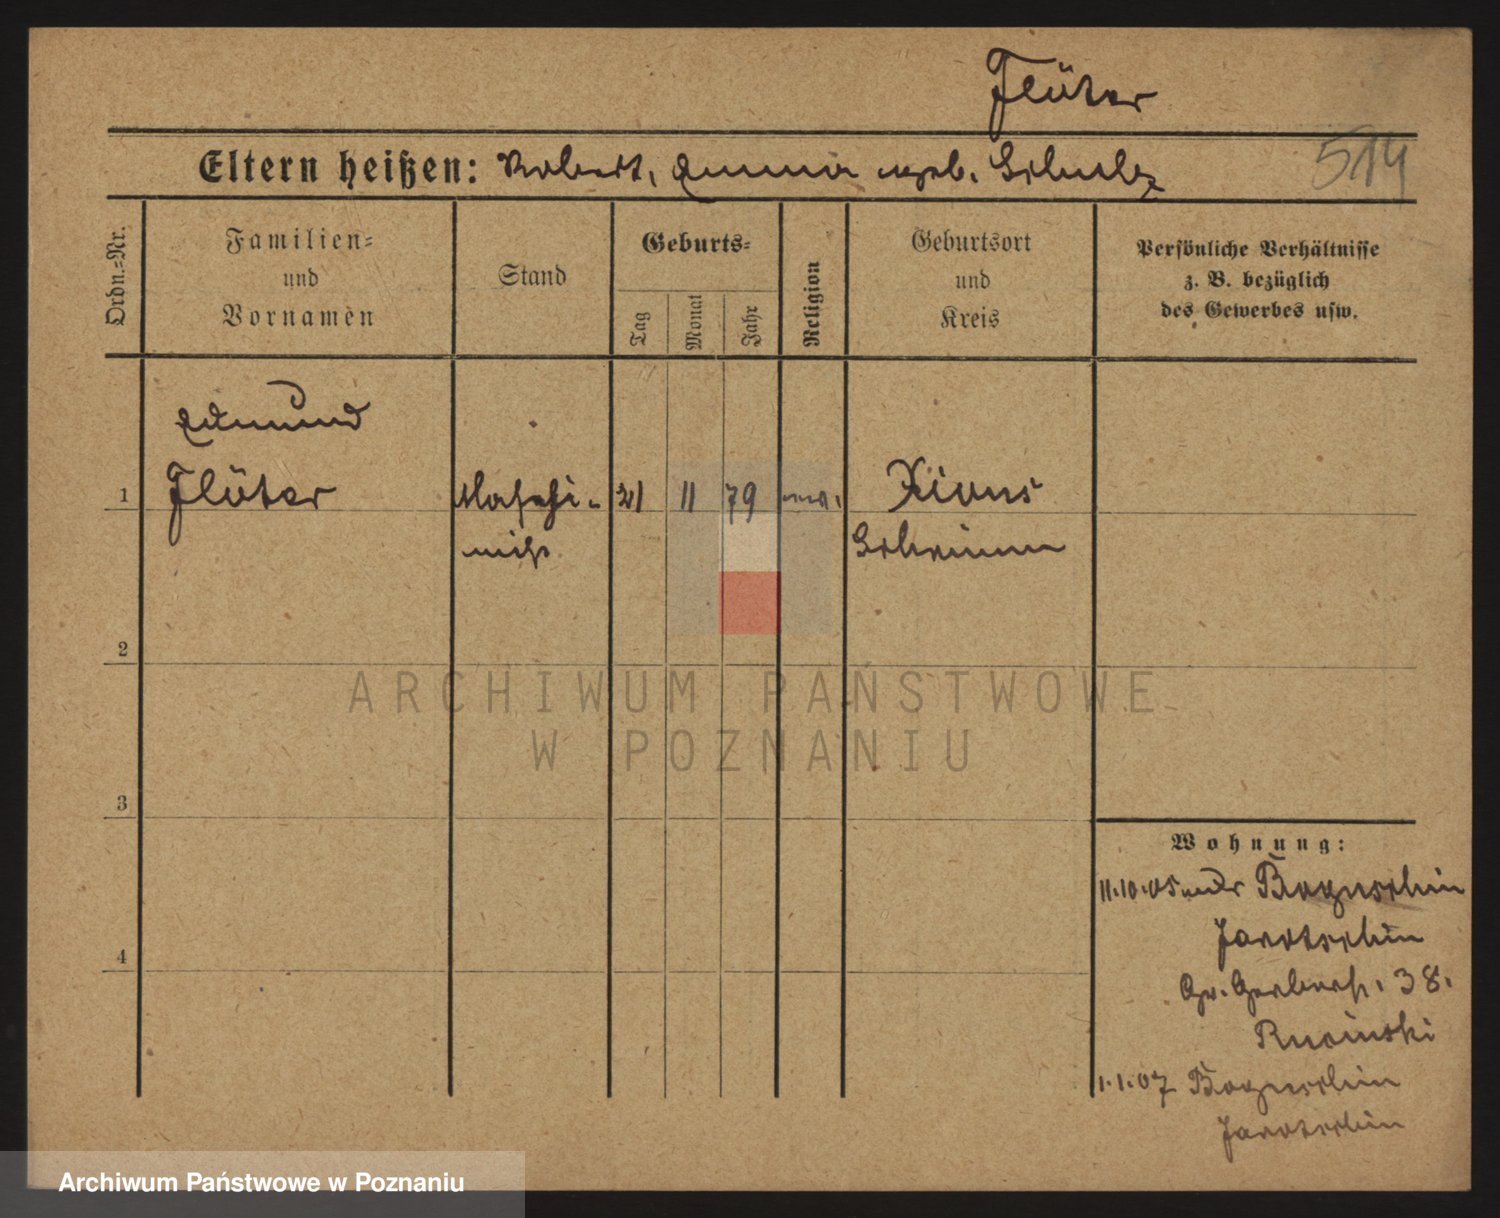 Flöter
Eltern heißen: Robert, Emma geb. Schulz
514
Ordn.-Nr.
Familien-
und
Vornamen
Stand
Geburts-
Tag
Monat
Jahr
Religion
Geburtsort
und
Kreis
Persönliche Verhältnisse
z. B. bezüglich
des Gewerbes usw.
Edmund
1 Flöter Maschi- 21 11 79 Xions
nist Schrimm
2
ARCHIWUM PAŃSTWOWE
W POZNANIU
3
Wohnung:
11.10.05 Boguschin
Jarotschin
4
Gr. Gerberst. 38.
Rucinski
1.1.07 Boguschin
Jarotschin
Archiwum Państwowe w Poznaniu